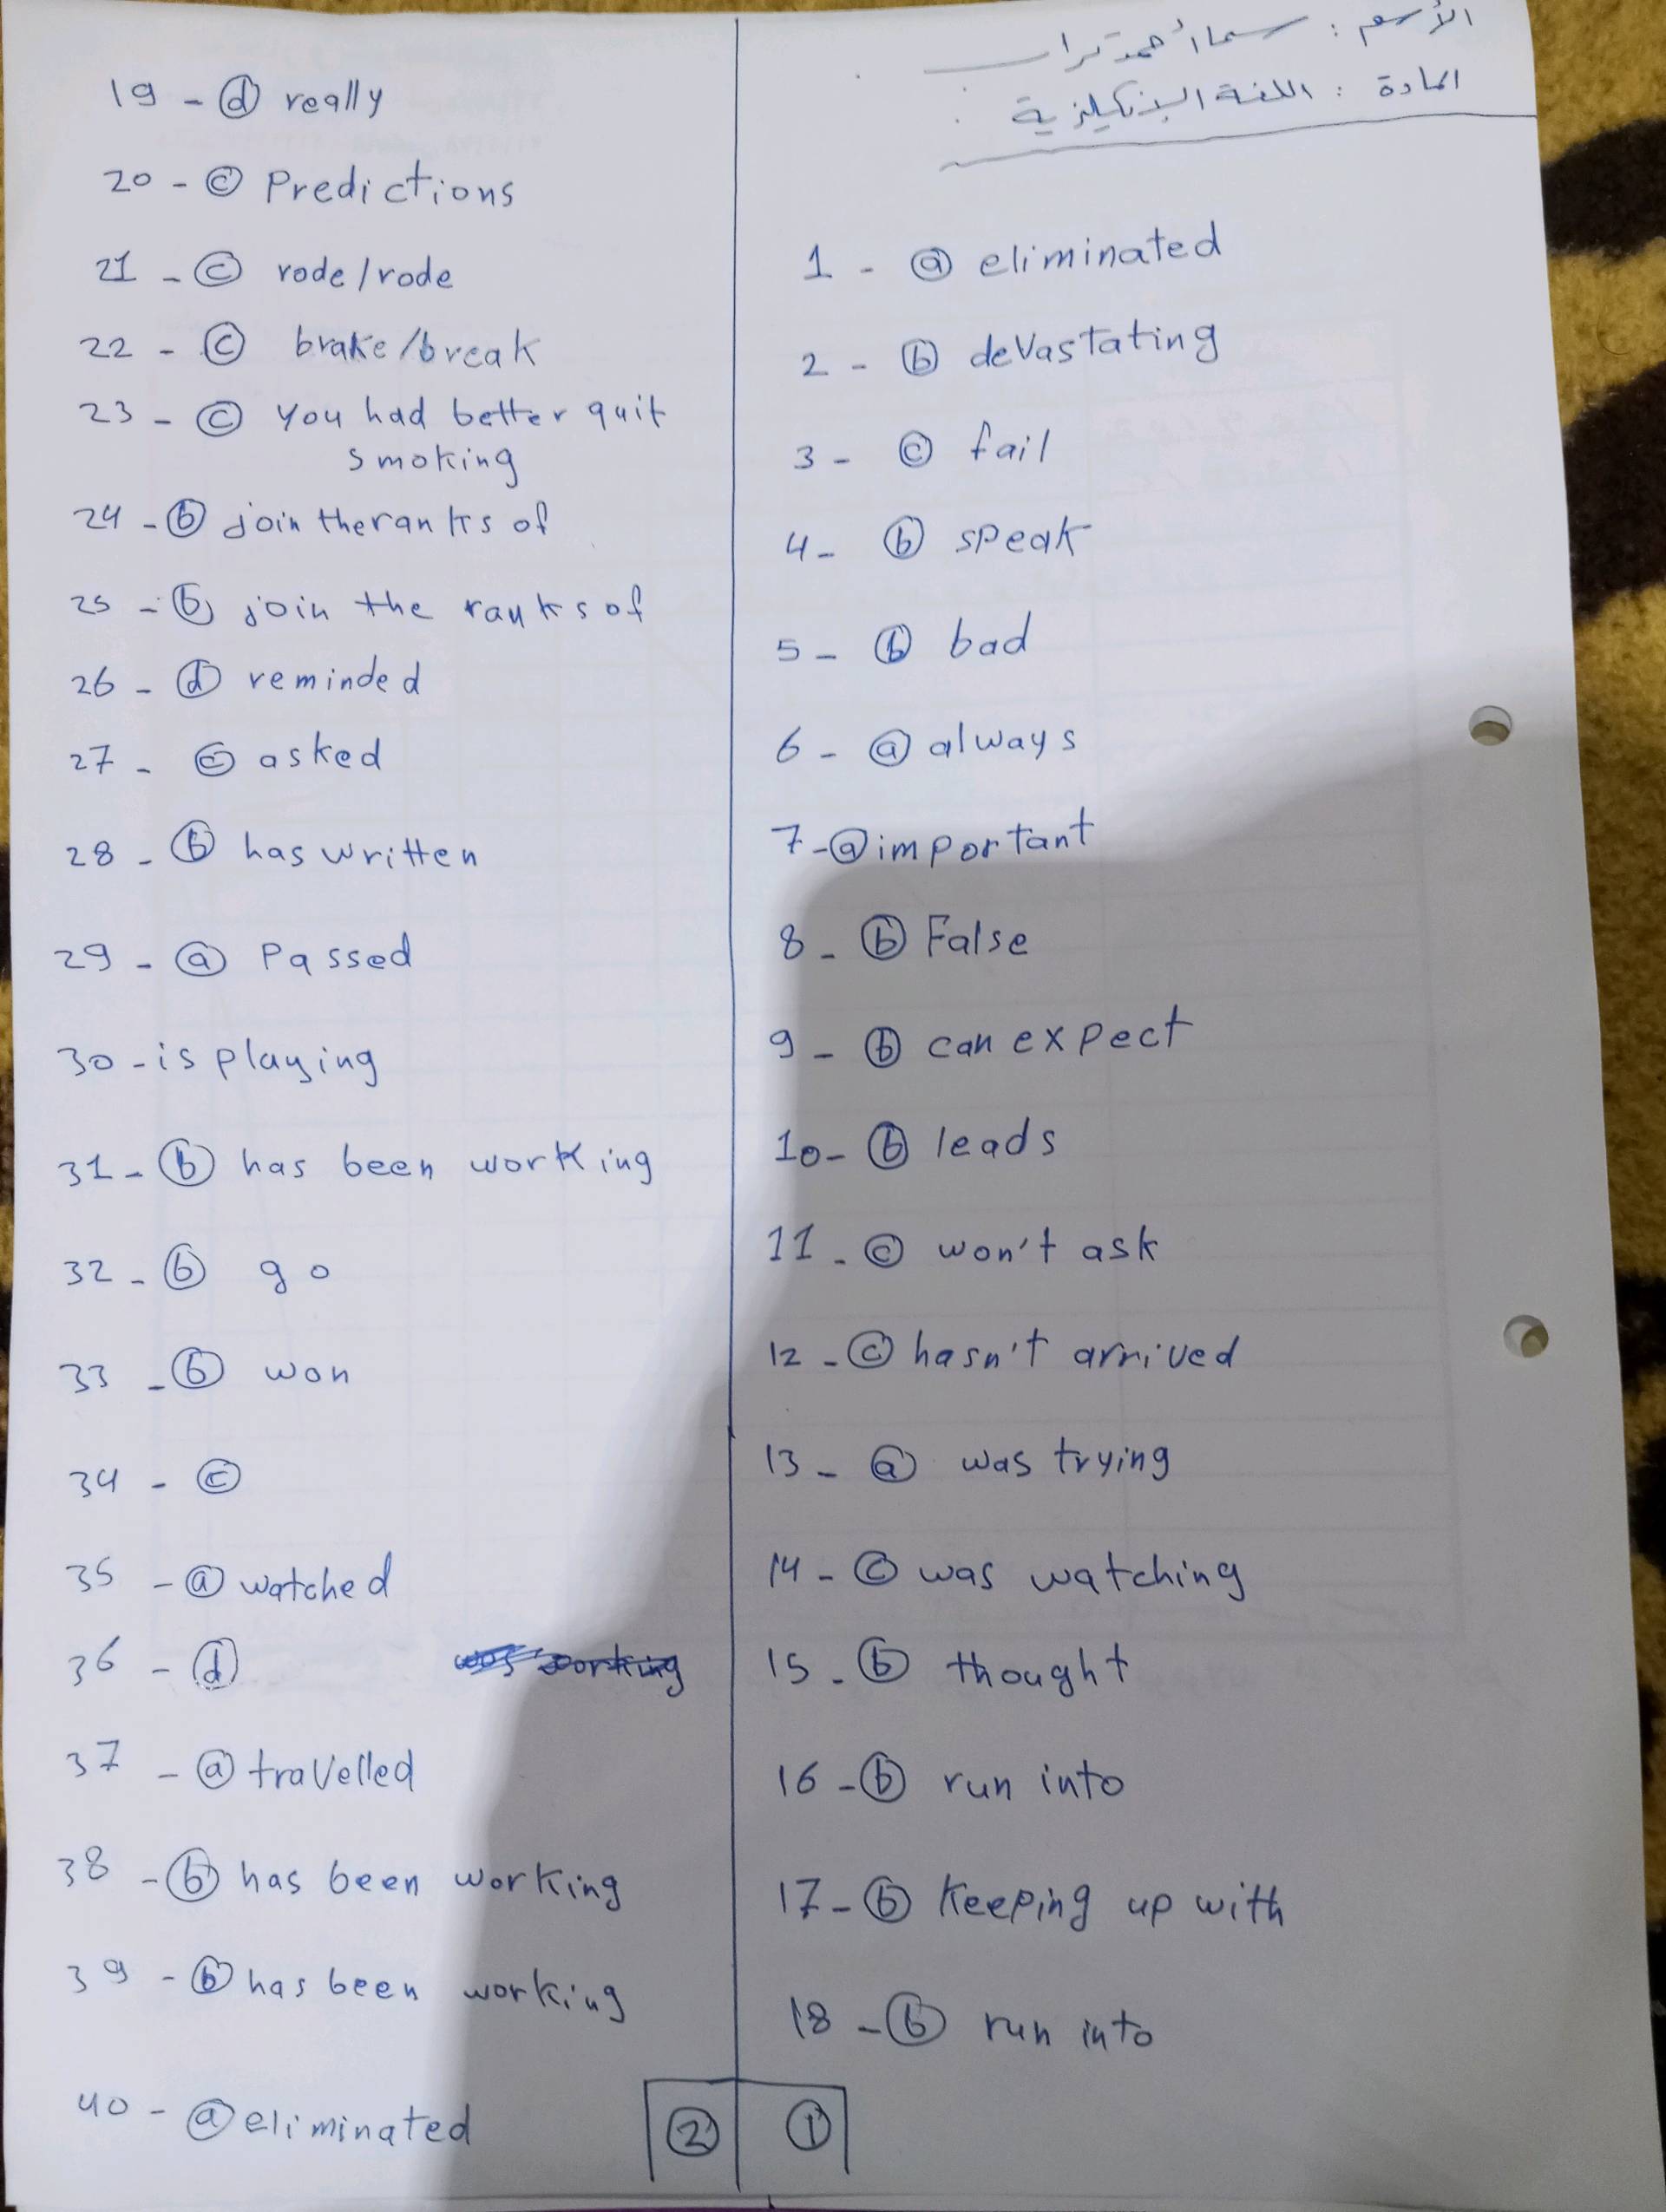 الأسم : سما أحمد تراب
المادة : اللغة الإنكليزية
1 - ⓐ eliminated
2 - ⓑ devastating
3 - ⓒ fail
4 - ⓑ speak
5 - ⓑ bad
6 - ⓐ always
7 - ⓐ important
8 - ⓑ False
9 - ⓑ can expect
10 - ⓑ leads
11 - ⓒ won't ask
12 - ⓒ hasn't arrived
13 - ⓐ was trying
14 - ⓒ was watching
15 - ⓑ thought
16 - ⓑ run into
17 - ⓑ keeping up with
18 - ⓑ run into
①
19 - ⓓ really
20 - ⓒ Predictions
21 - ⓒ rode/rode
22 - ⓒ brake/break
23 - ⓒ you had better quit
smoking
24 - ⓑ join the ranks of
25 - ⓑ join the ranks of
26 - ⓓ reminded
27 - ⓒ asked
28 - ⓑ has written
29 - ⓐ Passed
30 - is playing
31 - ⓑ has been working
32 - ⓑ go
33 - ⓑ won
34 - ⓒ
35 - ⓐ watched
36 - ⓓ
37 - ⓐ travelled
38 - ⓑ has been working
39 - ⓑ has been working
40 - ⓐ eliminated
②